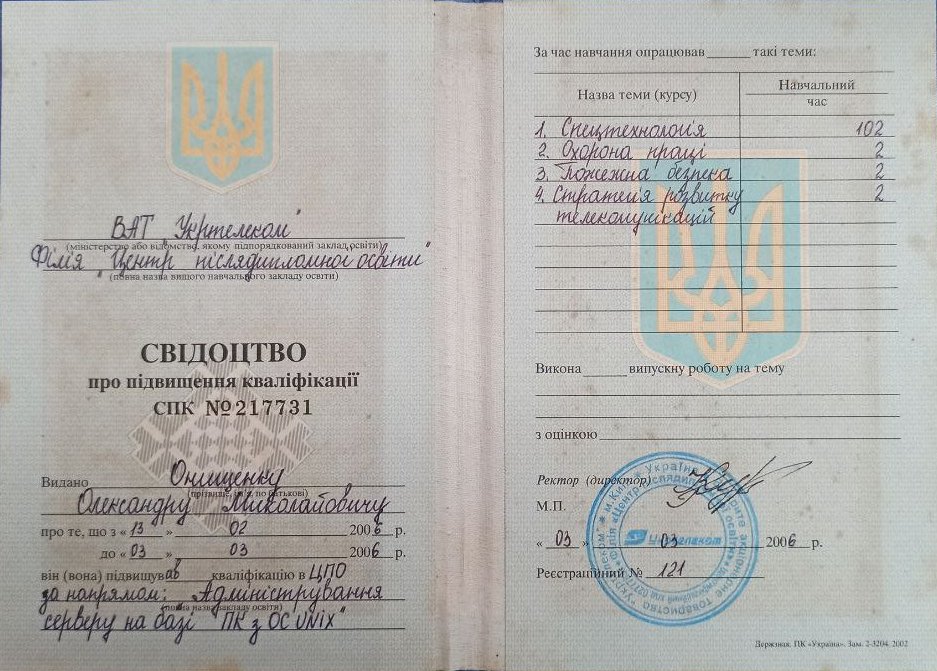 ВАТ "Укртелеком"
(міністерство або відомство, якому підпорядкований заклад освіти)
Філія "Центр післядипломної освіти"
(повна назва вищого навчального закладу освіти)
СВІДОЦТВО
про підвищення кваліфікації
СПК №217731
Видано Онищенку
(прізвище, ім'я, по батькові)
Олександру Миколайовичу
про те, що з « 13 » 02 2006 р.
до « 03 » 03 2006 р.
він (вона) підвищував кваліфікацію в ЦПО
за напрямом: Адміністрування
(повна назва закладу освіти)
серверу на базі "ПК з ОС UNIX"
За час навчання опрацював ______ такі теми:
Назва теми (курсу) Навчальний
час
1. Спецтехнологія 102
2. Охорона праці 2
3. Пожежна безпека 2
4. Стратегія розвитку 2
телекомунікацій
Викона ______ випускну роботу на тему
з оцінкою
Ректор (директор)
М.П.
« 03 » 03 2006 р.
Реєстраційний № 121
Україна * м.Київ
Укртелеком
Державна. ПК «Україна». Зам. 2-3204. 2002